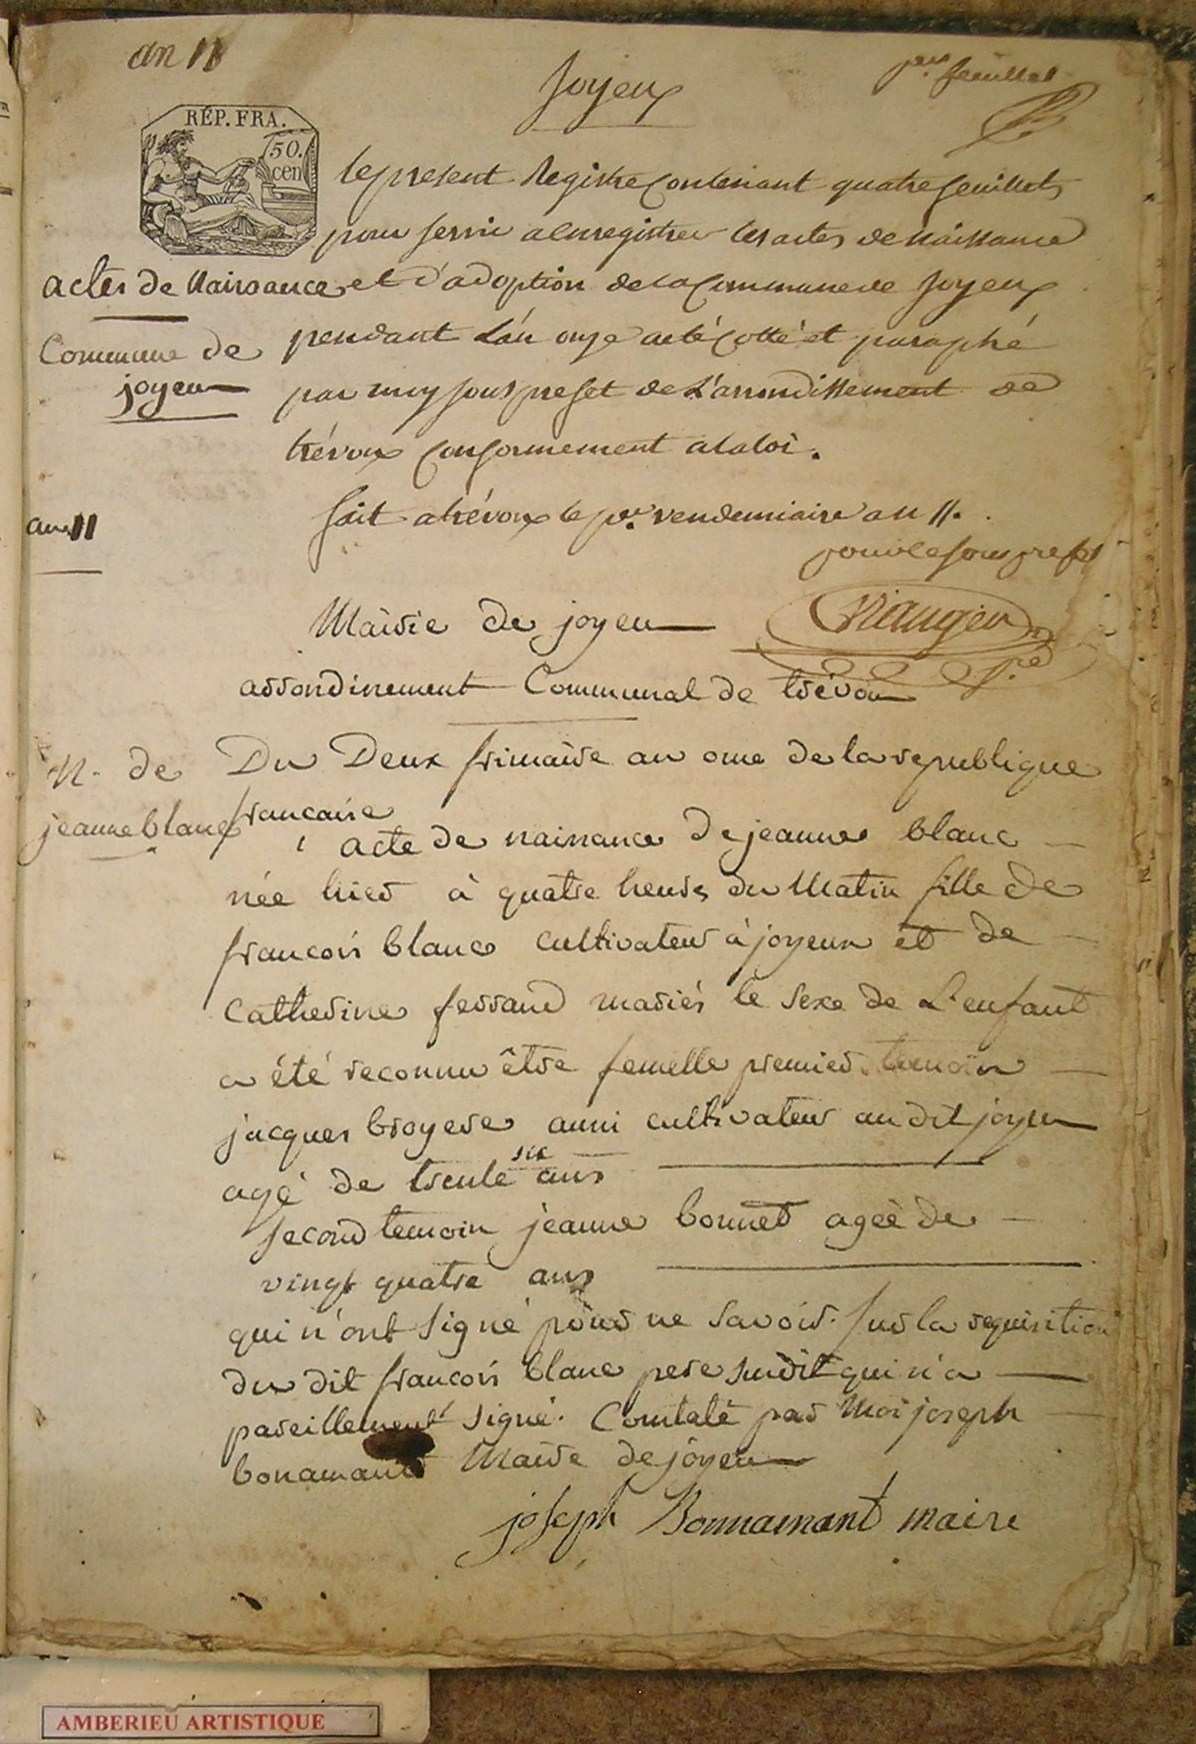 an 11
joyeux
per. feuillet
RÉP. FRA.
50.
cen
le present Registre contenant quatre feuillets
pour servir a enregistrer les actes de naissance
actes de Naissance et d'adoption de la Commune de joyeux
Commune de
joyeux
pendant L'an onze a eté cotté et paraphé
par moy sous prefet de L'arrondissement de
trévoux conformement a la loi.
an 11
fait a trévoux le per. vendemiaire an 11.
pour le sous prefet
Mairie de joyeux
arrondissement Communal de trévoux
N. de
jeanne blanc
Du Deux frimaire an onze de la republique
francaise
acte de naissance de jeanne blanc
née hier à quatre heures du Matin fille de
francois blanc cultivateur à joyeux et de
Catherine ferrand mariés le sexe de L'enfant
a été reconnu être femelle premier temoin
jacques broyere aussi cultivateur au dit joyeux
agé de trente six ans
second temoin jeanne bonnet ageé de
vingt quatre ans
qui n'ont signé pour ne savoir. sur la requisition
du dit francois blanc pere susdit qui n'a
pareillement signé. Constaté par Moi joseph
bonamant Maire de joyeux
joseph Bonnamant maire
AMBERIEU ARTISTIQUE